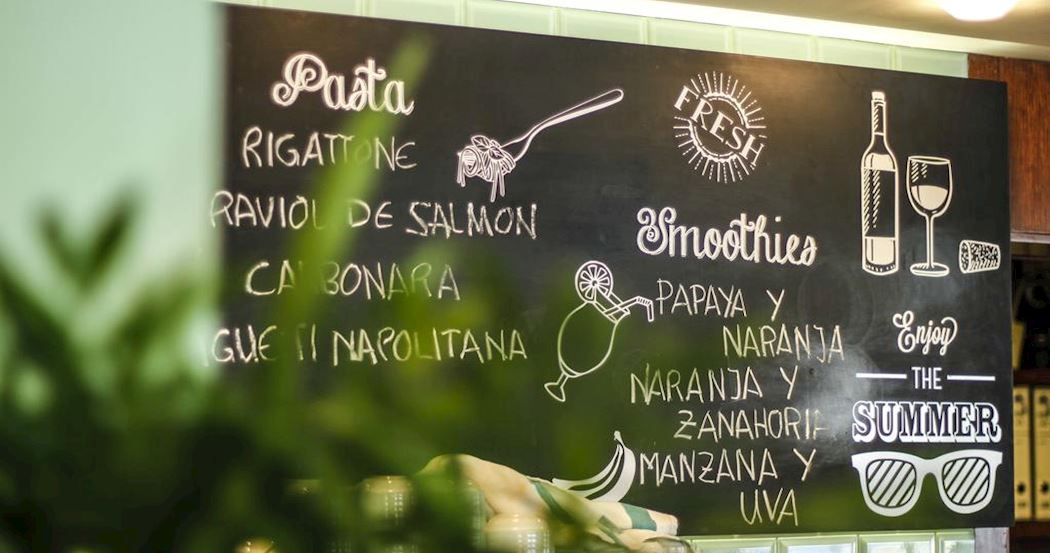 Pasta
RIGATTONE
DE SALMON
CARBONARA
NAPOLITANA
FRESH
Smoothies
PAPAYA Y
NARANJA
NARANJA Y
ZANAHORIA
MANZANA Y
UVA
Enjoy
THE
SUMMER